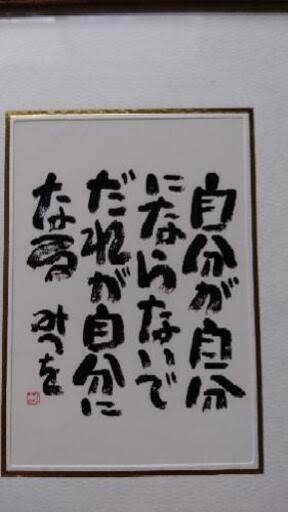 自分が自分
にならないで
だれが自分に
なる みつを